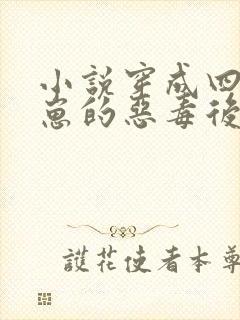 小說穿成四
崽的惡毒後
護花使者本尊